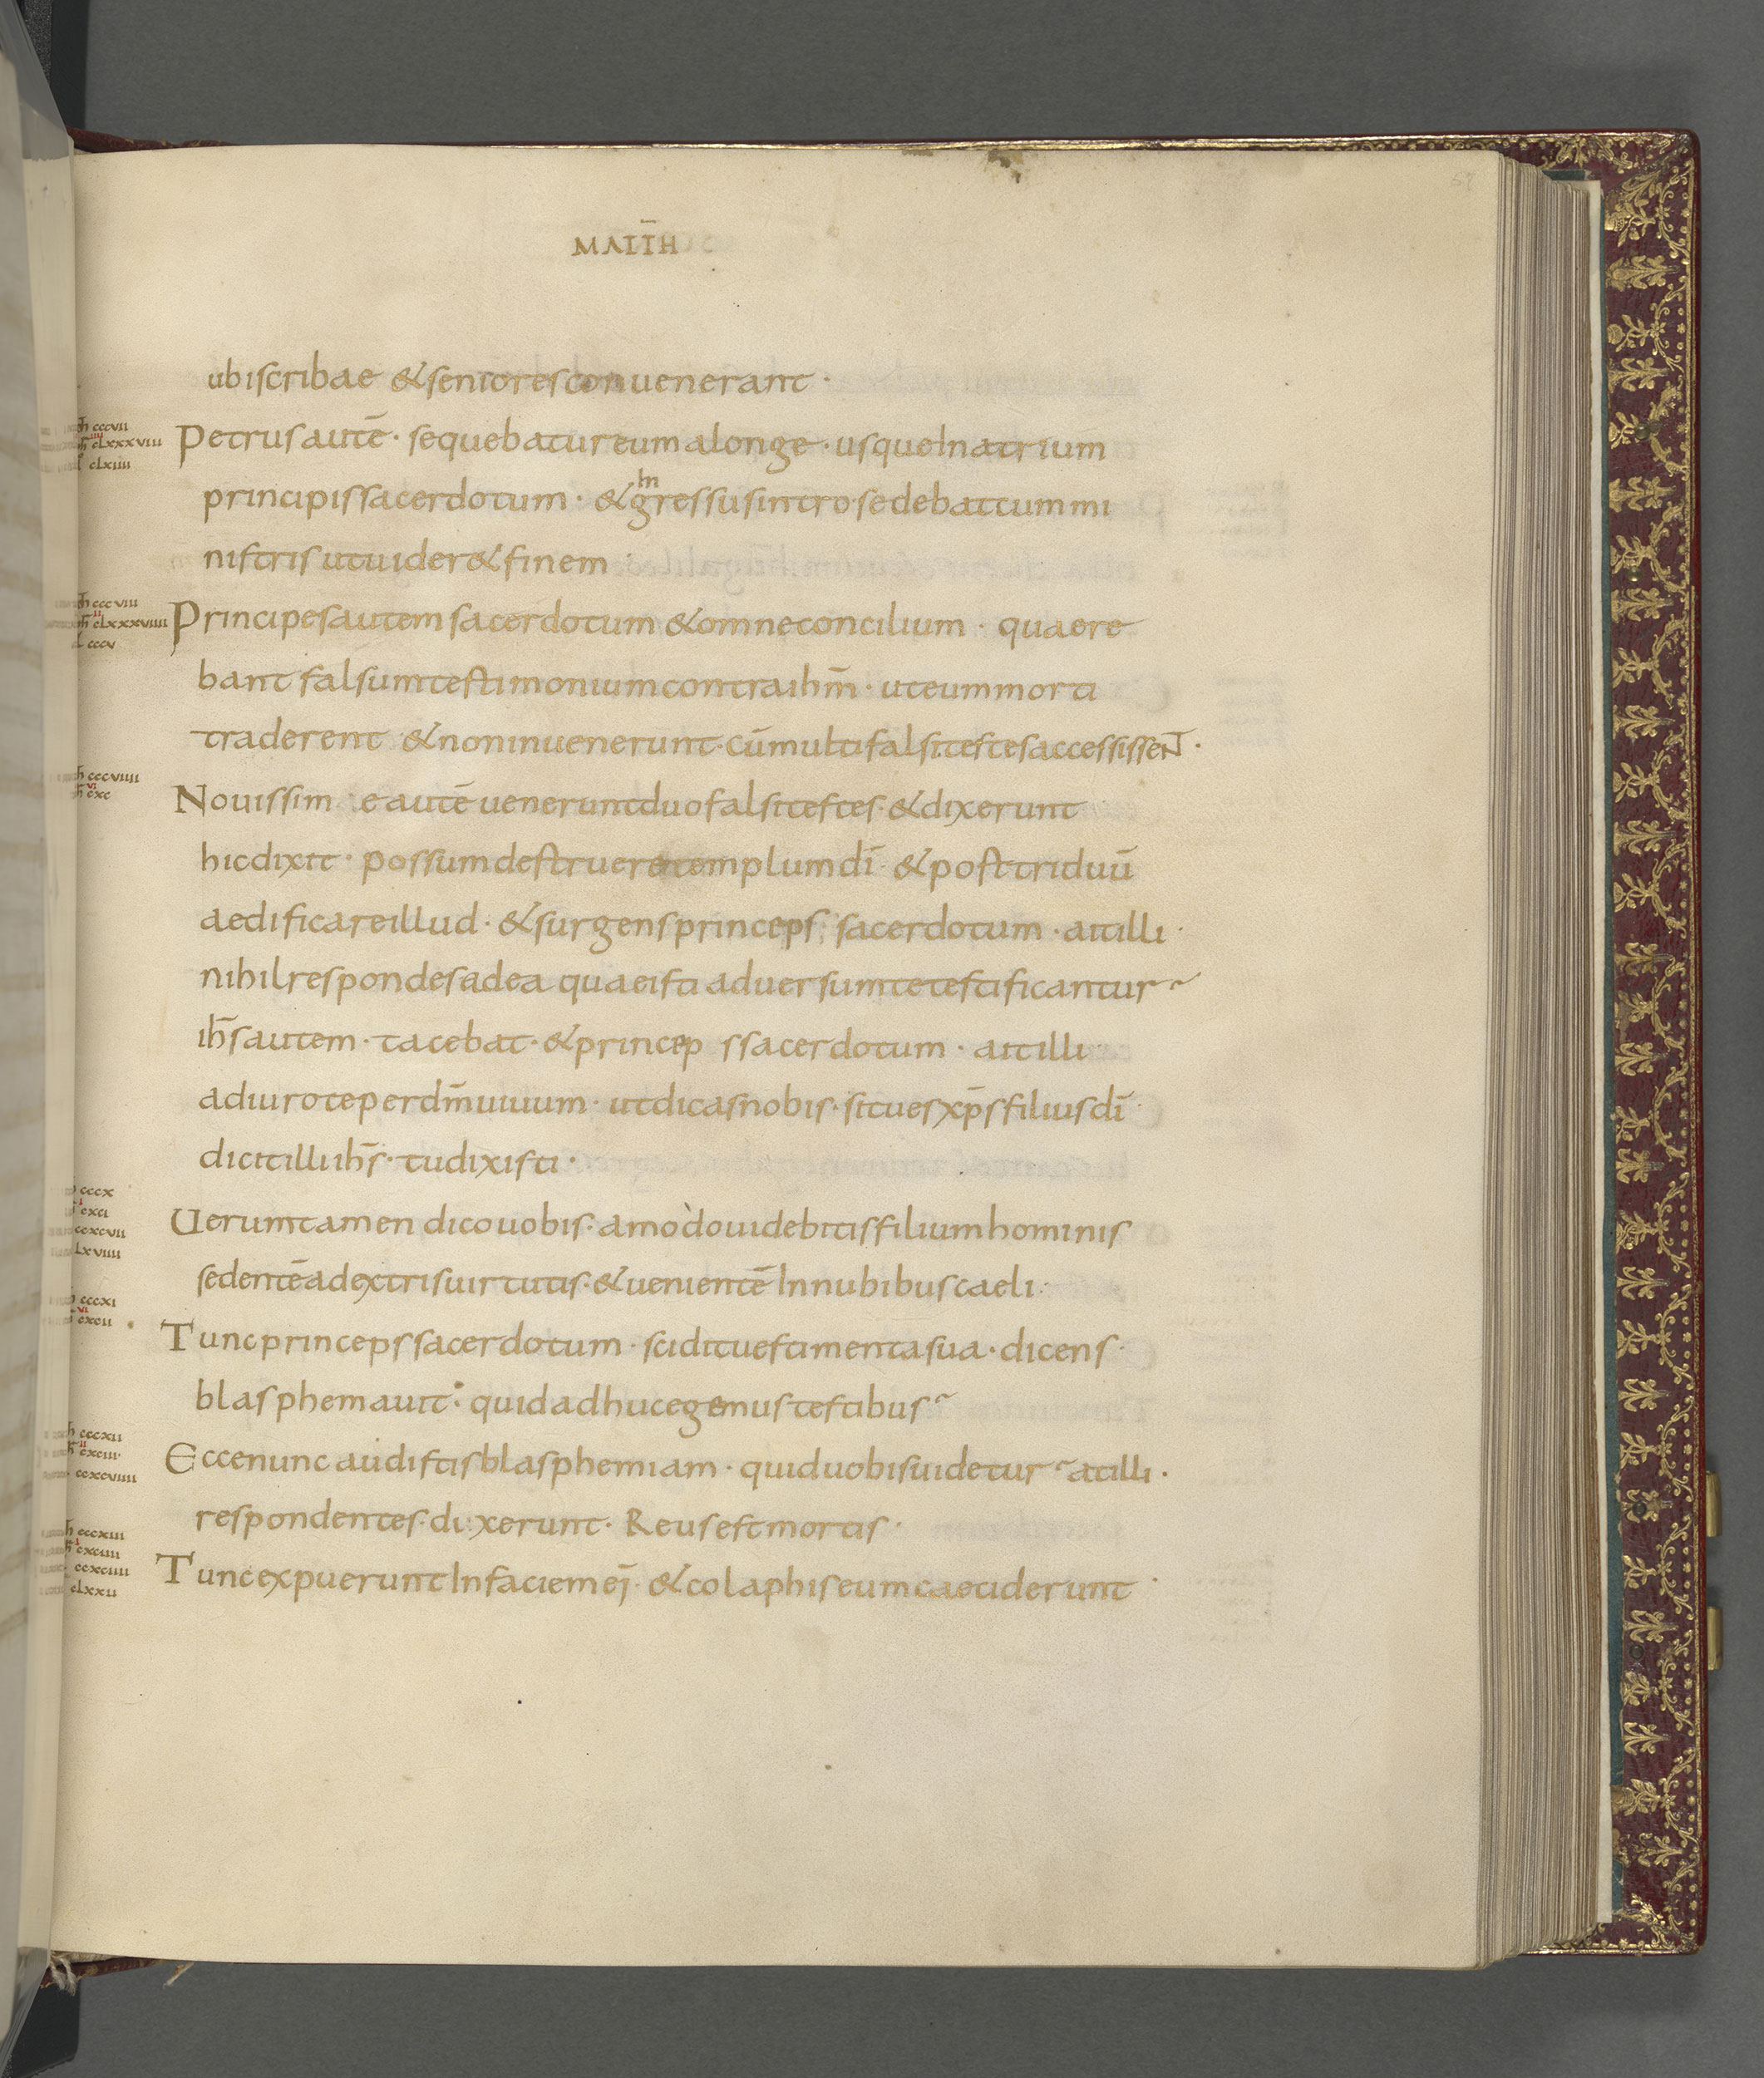 MATT̄H
57
ubi scribae & seniores conuenerant ·
mh̄ cccvii
Petrus autē · sequebatur eum a longe · usque In atrium
mh̄ cLxxxviiii
cLxiiii
principis sacerdotum · & In gressus intro sedebat cum mi
nistris ut uider& finem ·
cccviii
Principes autem sacerdotum & omne concilium · quaere
cLxxxviiii
cccv
bant falsum testimonium contra ihm̄ · ut eum morti
traderent & non inuenerunt · cū multi falsi testes accessissent ·
cccviiii
Nouissim e autē uenerunt duo falsi testes · & dixerunt
cxc
hic dixit · possum destruere templum dī · & post triduū
aedificare illud · & surgens princeps sacerdotum · ait illi ·
nihil respondes ad ea quae isti aduersum te testificantur
ihs̄ autem · tacebat · & princep s sacerdotum · ait illi ·
adiuro te per dm̄ uiuum · ut dicas nobis · si tu es xp̄s filius dī ·
dicit illi ihs̄ · tu dixisti ·
cccx
cxci
Ueruntamen dico uobis · amòdo uidebitis filium hominis
ccxcvii
Lxviiii
sedentē a dextris uirtutis · & uenientē In nubibus caeli ·
cccxi
cxcii
Tunc princeps sacerdotum · scidit uestimenta sua · dicens ·
blasphemauit · quid adhuc egemus testibus
cccxii
Ecce nunc audistis blasphemiam · quid uobis uidetur at illi ·
cxciii
ccxcviiii
respondentes · dixerunt · Reus est mortis ·
cccxiii
cxciiii
Tunc expuerunt In faciem ej̄ · & colaphis eum caeciderunt ·
ccxciiii
cLxxii